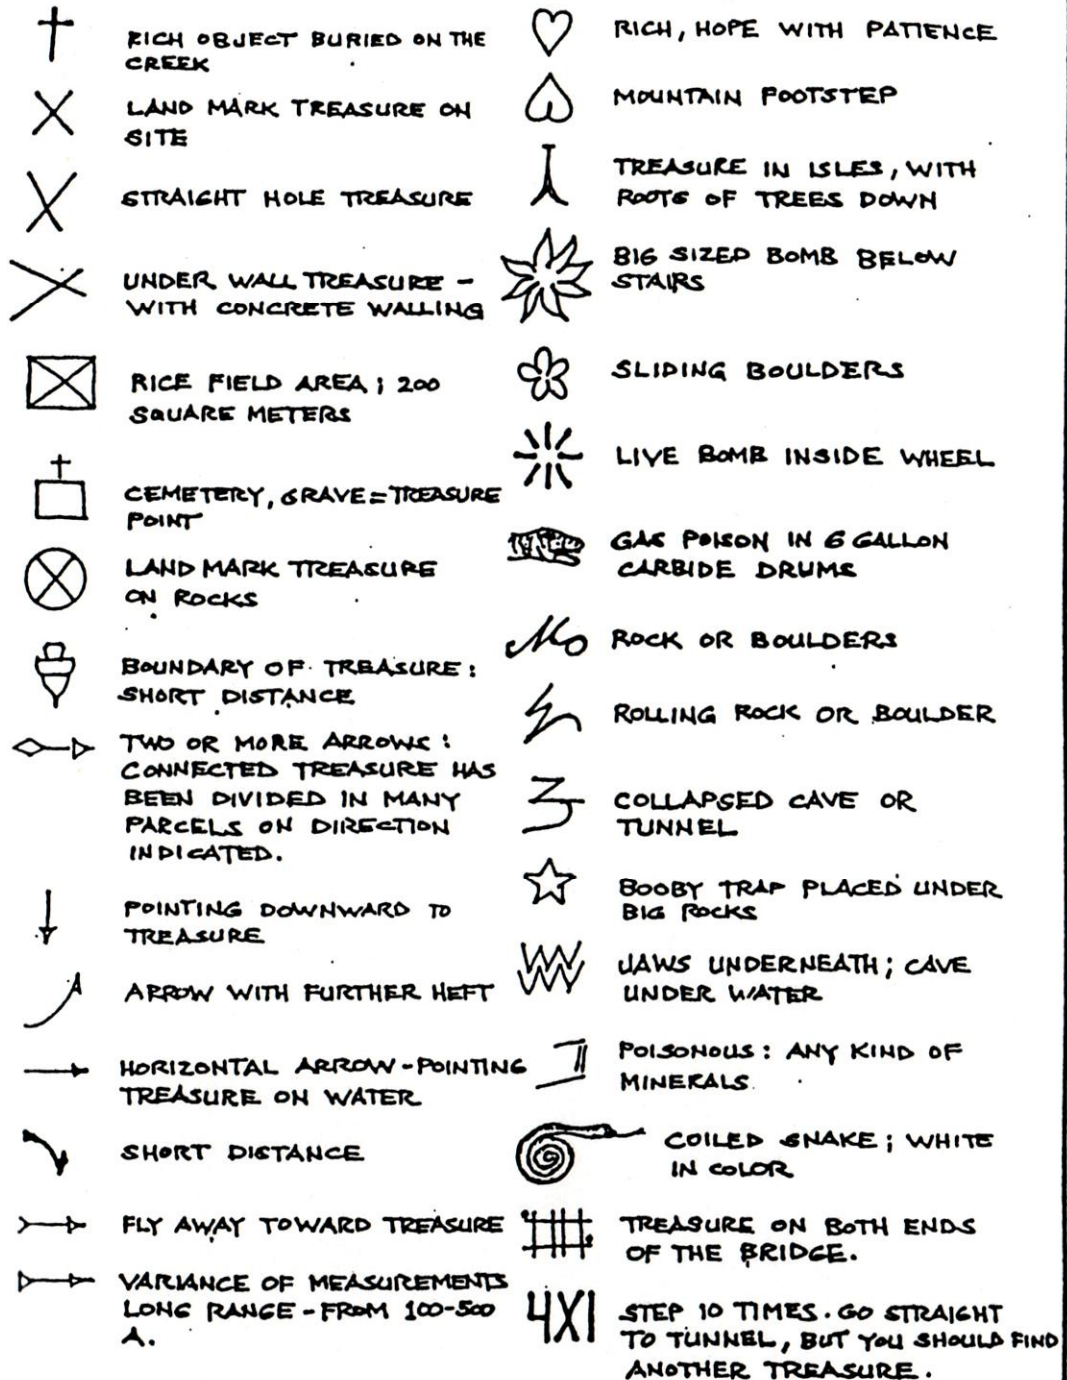 RICH OBJECT BURIED ON THE
CREEK
LAND MARK TREASURE ON
SITE
STRAIGHT HOLE TREASURE
UNDER WALL TREASURE -
WITH CONCRETE WALLING
RICE FIELD AREA; 200
SQUARE METERS
CEMETERY, GRAVE = TREASURE
POINT
LAND MARK TREASURE
ON ROCKS
BOUNDARY OF TREASURE:
SHORT DISTANCE
TWO OR MORE ARROWS:
CONNECTED TREASURE HAS
BEEN DIVIDED IN MANY
PARCELS ON DIRECTION
INDICATED.
POINTING DOWNWARD TO
TREASURE
ARROW WITH FURTHER HEFT
HORIZONTAL ARROW - POINTING
TREASURE ON WATER
SHORT DISTANCE
FLY AWAY TOWARD TREASURE
VARIANCE OF MEASUREMENTS
LONG RANGE - FROM 100-500
A.
RICH, HOPE WITH PATIENCE
MOUNTAIN FOOTSTEP
TREASURE IN ISLES, WITH
ROOTS OF TREES DOWN
BIG SIZED BOMB BELOW
STAIRS
SLIDING BOULDERS
LIVE BOMB INSIDE WHEEL
GAS POISON IN 6 GALLON
CARBIDE DRUMS
ROCK OR BOULDERS
ROLLING ROCK OR BOULDER
COLLAPSED CAVE OR
TUNNEL
BOOBY TRAP PLACED UNDER
BIG ROCKS
JAWS UNDERNEATH; CAVE
UNDER WATER
POISONOUS: ANY KIND OF
MINERALS
COILED SNAKE; WHITE
IN COLOR
TREASURE ON BOTH ENDS
OF THE BRIDGE.
4X1 STEP 10 TIMES. GO STRAIGHT
TO TUNNEL, BUT YOU SHOULD FIND
ANOTHER TREASURE.